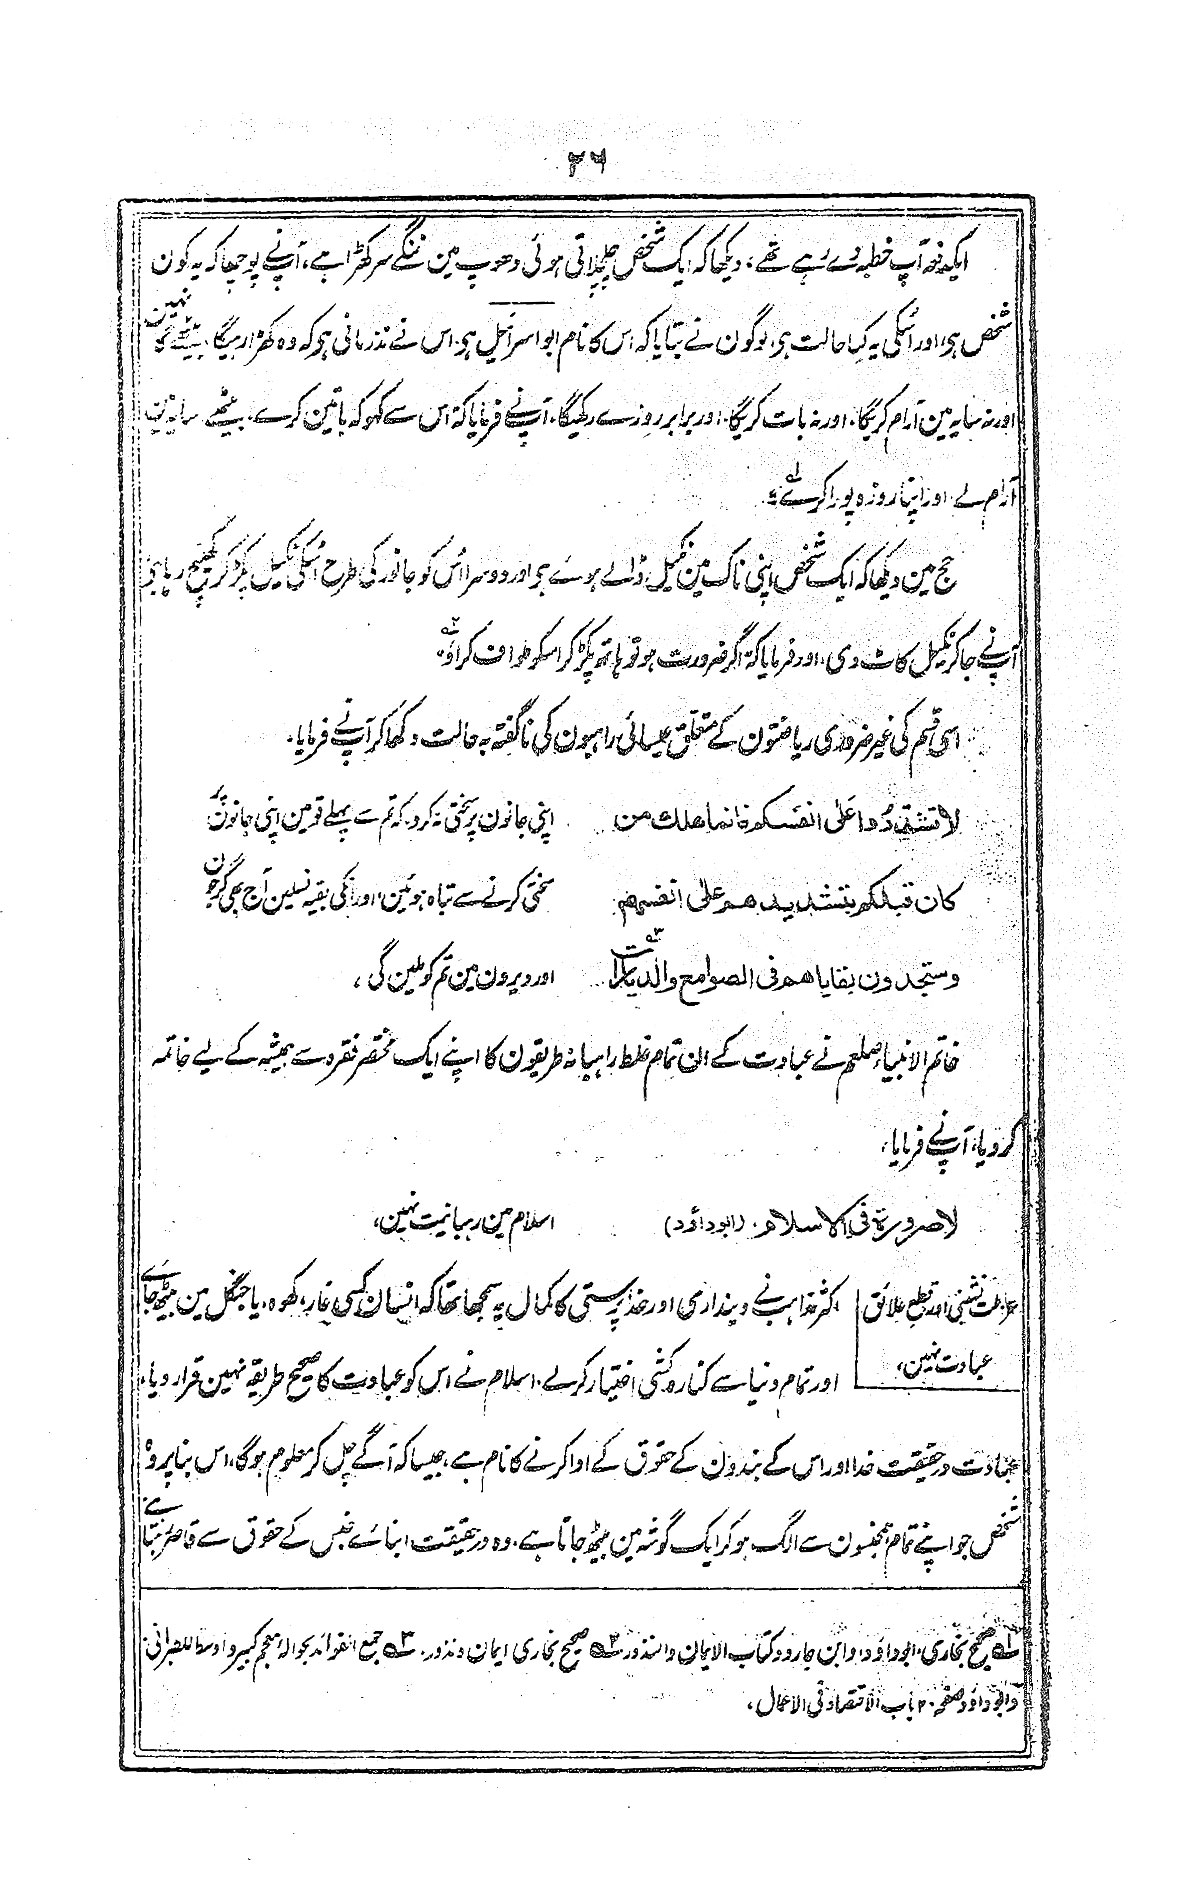 ۲۶
ایکدفعہ آپ خطبہ دے رہے تھے، دیکھا کہ ایک شخص چلچلاتی ہوئی دھوپ مین ننگے سر کھڑا ہے، آپنے پوچھا کہ یہ کون
شخص ہی، اور اُسکی یہ کیا حالت ہی، لوگون نے بتایا کہ اس کا نام ابو اسرائیل ہی، اس نے نذر مانی ہی کہ وہ کھڑا رہیگا، بیٹھے گا نہین
اور نہ سایہ مین آرام کریگا، اور نہ بات کریگا، اور برابر روزے رکھیگا، آپنے فرمایا کہ اس سے کہو کہ باتین کرے، بیٹھے سایہ مین
آرام لے، اور اپنا روزہ پورا کرے؎۱
حج مین دیکھا کہ ایک شخص اپنی ناک مین نکیل ڈالے ہوئے ہی اور دوسرا اُس کو جانور کی طرح اُسکی نکیل پکڑ کر کھینچ رہا ہی
آپنے جاکر نکیل کاٹ دی، اور فرمایا کہ اگر ضرورت ہو تو ہاتھ پکڑ کر اسکو طواف کراؤ؎۲
اسی قسم کی غیر ضروری ریاضتون کے متعلق عیسائی راہبون کی ناگفتہ بہ حالت دکھا کر آپنے فرمایا،
لا تشددوا علی انفسکم فانما ھلک من اپنی جانون پر سختی نہ کرو، کہ تم سے پہلے قومین اپنی جانون پر
کان قبلکم بتشدیدھم علی انفسھم سختی کرنے سے تباہ ہوئین، اور انکی بقیہ نسلین آج بھی گرجون
وستجدون بقایاھم فی الصوامع والدیارات؎۳ اور دیرون مین تم کو ملین گی،
خاتم الانبیاء صلعم نے عبادت کے ان تمام غلط راہبانہ طریقون کا اپنے ایک مختصر فقرہ سے ہمیشہ کے لیے خاتمہ
کر دیا، آپنے فرمایا،
لا صرورۃ فی الاسلام، (ابوداؤد) اسلام مین رہبانیت نہین،
عزلت نشینی اور قطع علائق
عبادت نہین،
اکثر مذاہب نے دینداری اور خدا پرستی کا کمال یہ سمجھا تھا کہ انسان کسی غار، کھوہ، یا جنگل مین بیٹھ جائے
اور تمام دنیا سے کنارہ کشی اختیار کر لے، اسلام نے اس کو عبادت کا صحیح طریقہ نہین قرار دیا،
عبادت درحقیقت خدا اور اس کے بندون کے حقوق کے ادا کرنے کا نام ہے، جیسا کہ آگے چل کر معلوم ہوگا، اس بنا پر وہ
شخص جو اپنے تمام ہمجنسون سے الگ ہو کر ایک گوشہ مین بیٹھ جاتا ہے، وہ درحقیقت ابنائے جنس کے حقوق سے قاصر رہتا ہے
؎۱ صحیح بخاری، ابوداؤد و ابن جارود کتاب الایمان والنذور ؎۲ صحیح بخاری ایمان و نذور، ؎۳ جمع الفوائد بحوالہ معجم کبیر و اوسط للطبرانی
و ابوداؤد صفحہ ۲۰ باب الاقتصاد فی الاعمال،